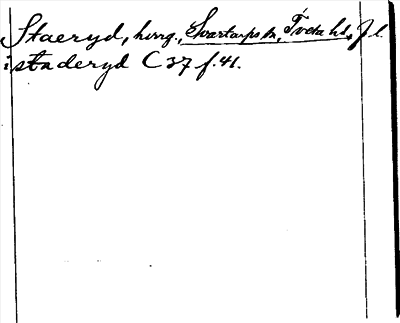 Staeryd, hmg., Svartarps sn, Tveta hd, J. l.
i staderyd C 37 f. 41.